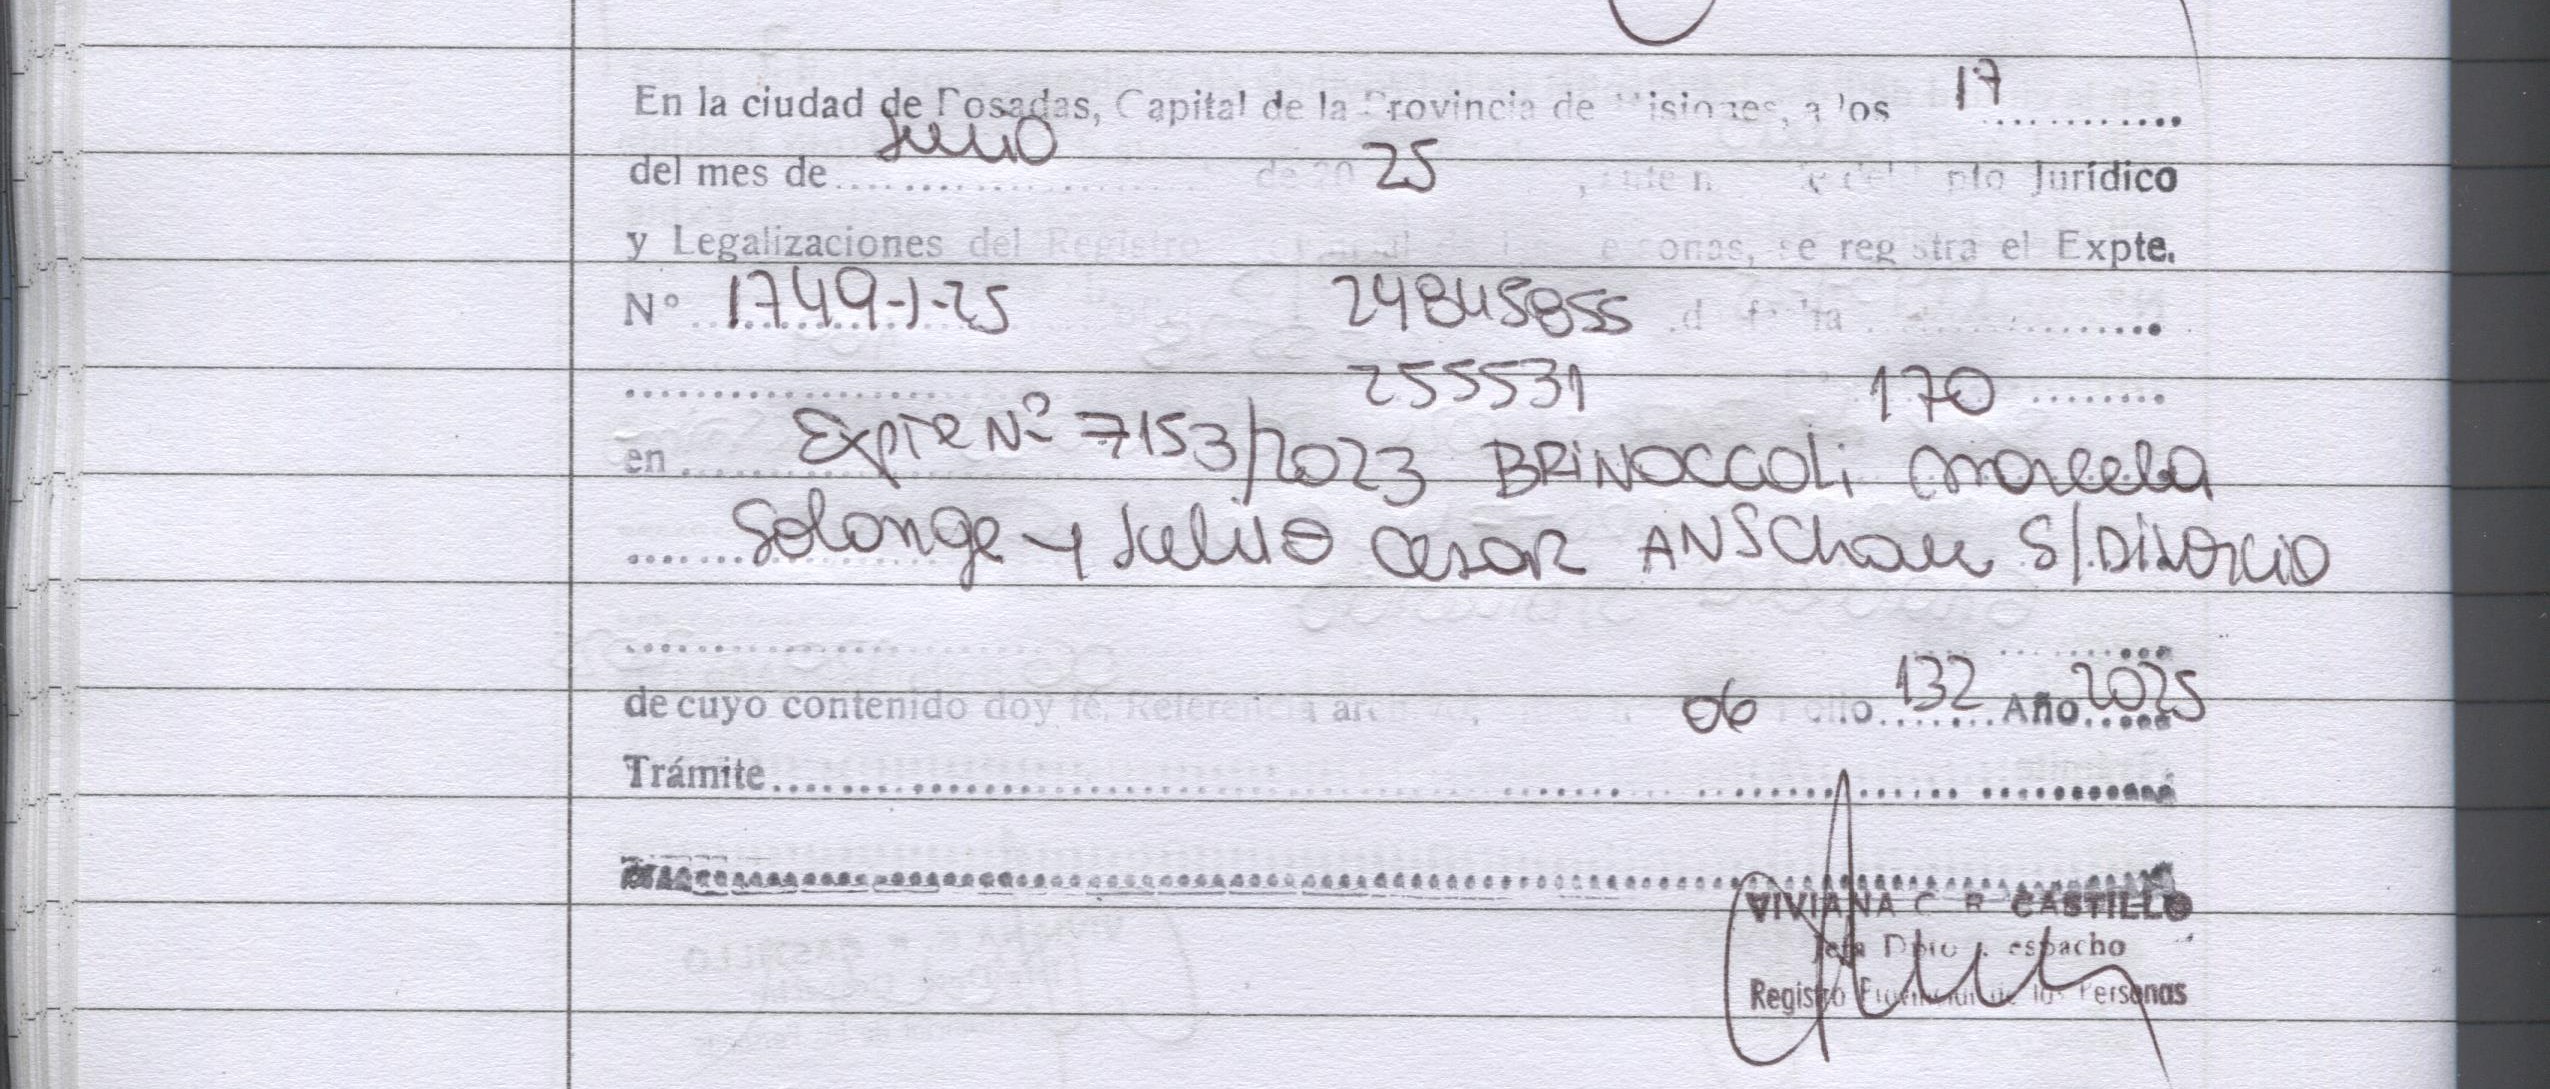 En la ciudad de Posadas, Capital de la Provincia de Misiones, a los 17
del mes de Junio de 20 25, Jurídico
y Legalizaciones del Registro Personas, se registra el Expte.
Nº 1749-J-25 24845855
255531 170
en Expte Nº 7153/2023 BRINOCCOLi Marcela
Solange y Julio Cesar ANSChau S/DiVorcio
de cuyo contenido doy fé. Referencia 06 Folio 132 Año 2025
Trámite
VIVIANA C. R. CASTILLO
Jefa Dpto. Despacho
Registro Provincial de las Personas